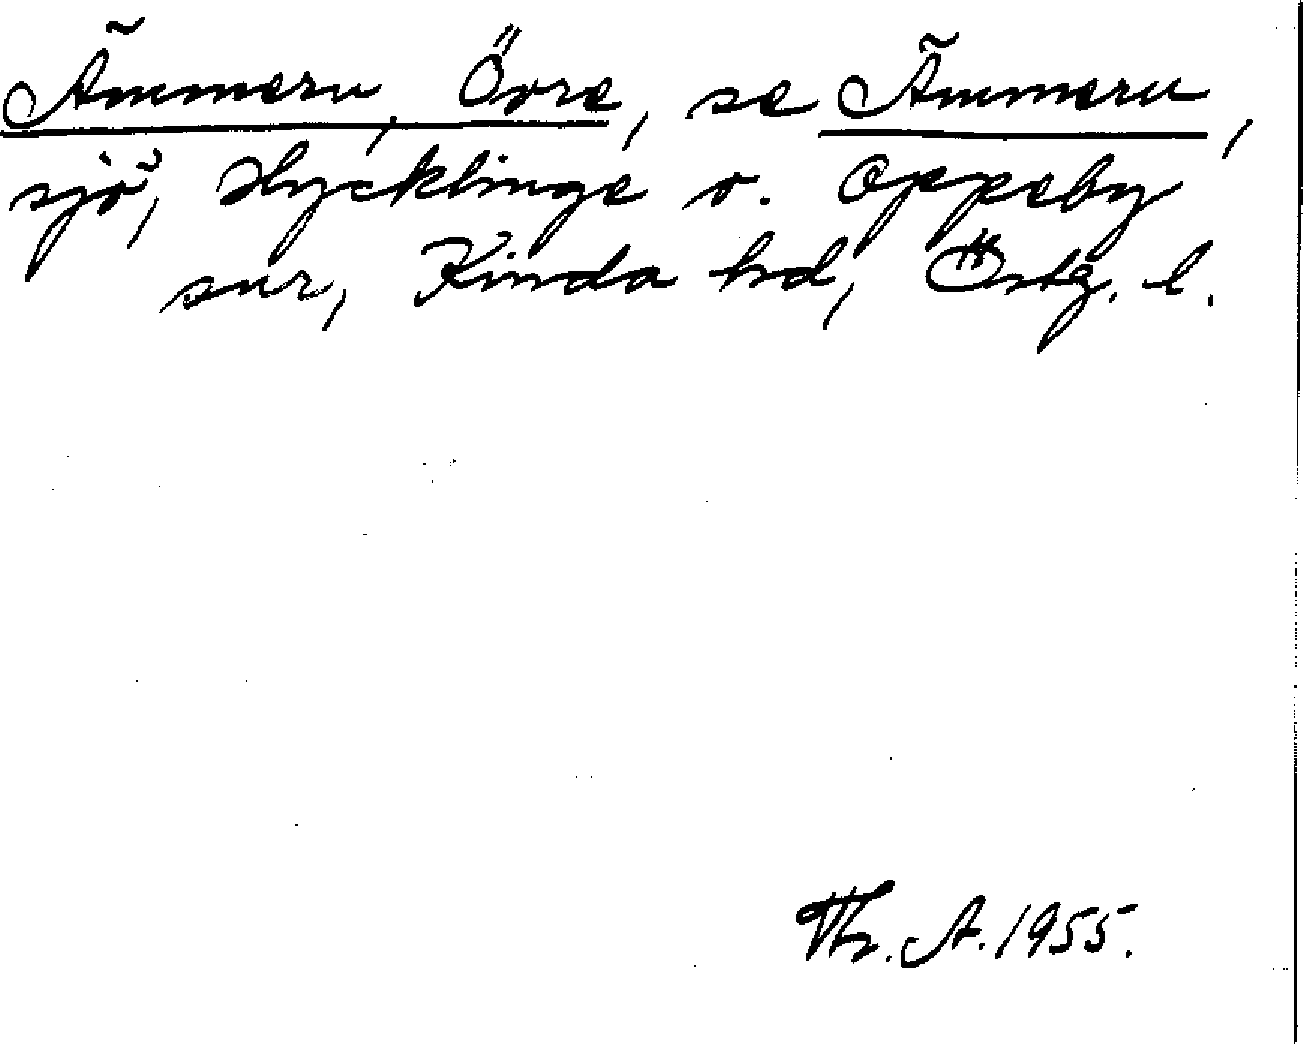 Ämmern, Övre, se Ämmern,
sjö, Hycklinge o. Oppeby
snr, Kinda hd, Östg. l.
Th. A. 1955.